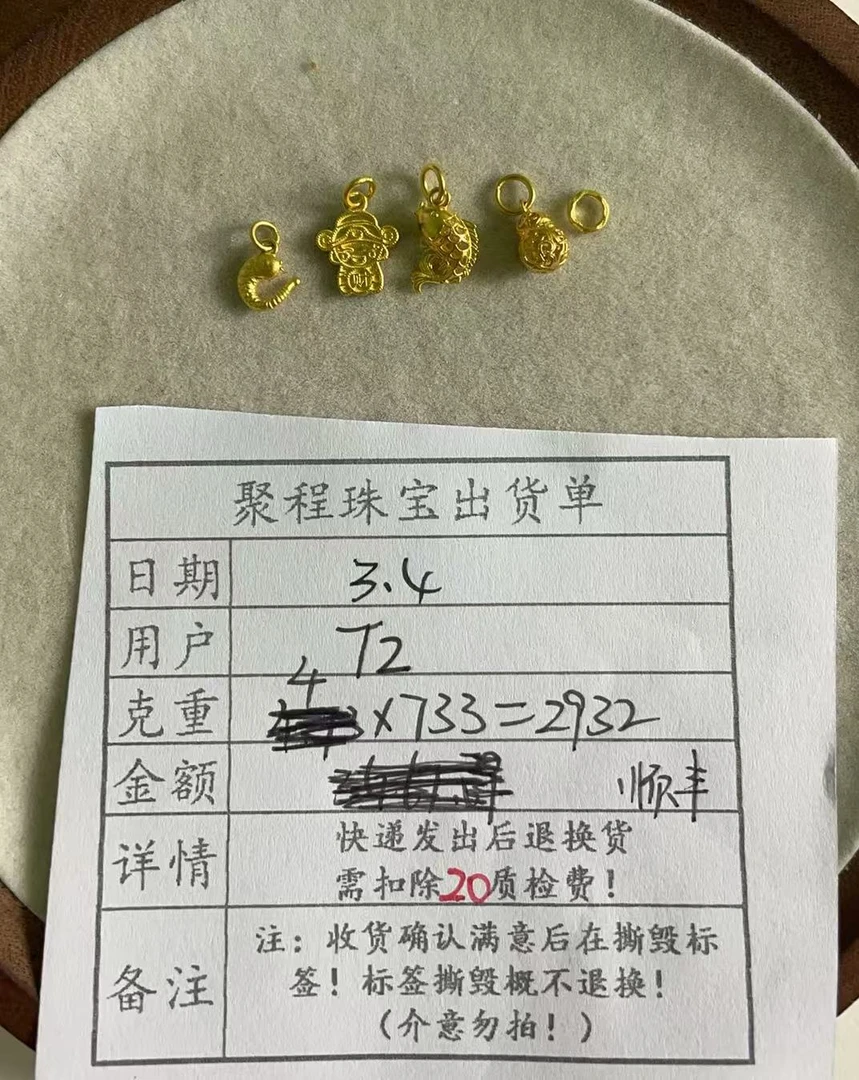 聚程珠宝出货单
日期 3.4
用户 T2
克重 4 ×733=2932
金额 顺丰
详情 快递发出后退换货
需扣除20质检费！
备注 注：收货确认满意后在撕毁标
签！标签撕毁概不退换！
（介意勿拍！）